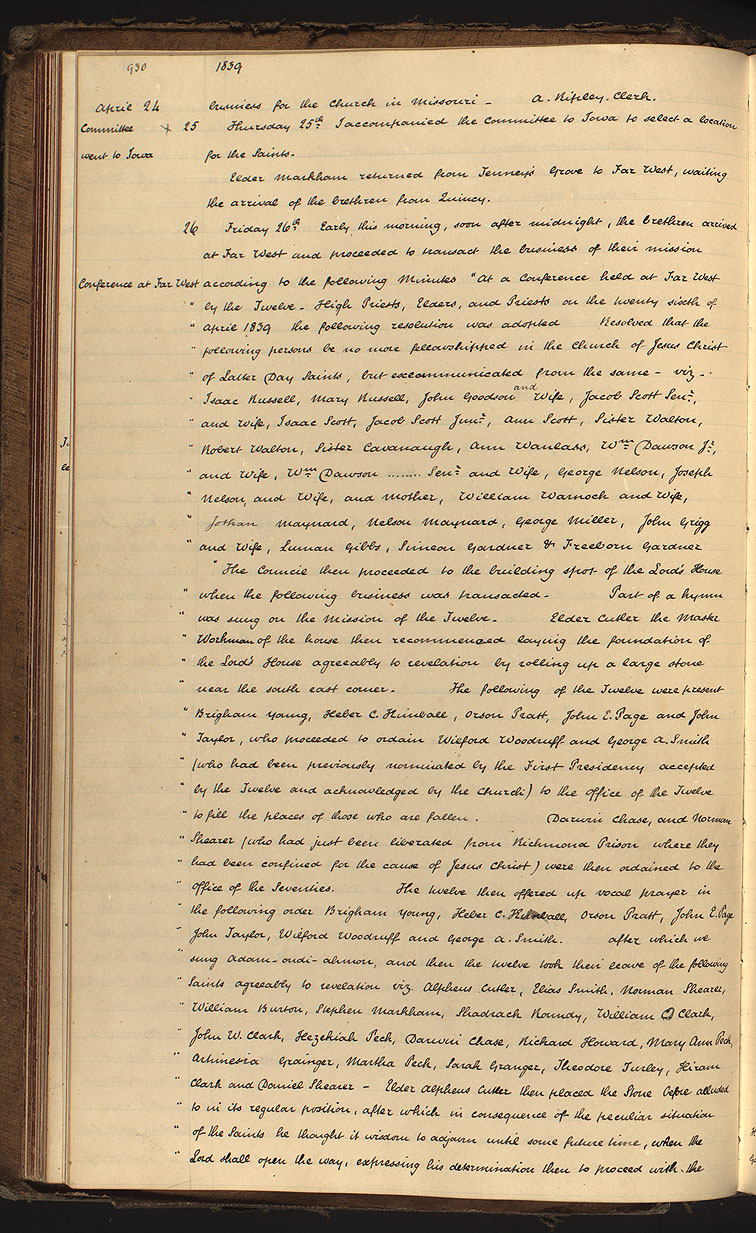 930 1839
April 24 business for the Church in Missouri – A. Ripley. Clerk.
Committee + 25 Thursday 25th I accompanied the Committee to Iowa to select a location
went to Iowa for the Saints.
Elder Markham returned from Tenney's Grove to Far West, waiting
the arrival of the brethren from Quincy.
26 Friday 26th Early this morning, soon after midnight, the brethren arrived
at Far West and proceeded to transact the business of their mission
Conference at Far West according to the following Minutes "At a Conference held at Far West
" by the Twelve - High Priests, Elders, and Priests on the twenty sixth of
" April 1839 the following resolution was adopted Resolved that the
" following persons be no more fellowshipped in the Church of Jesus Christ
" of Latter Day Saints, but excommunicated from the same – viz –.
" Isaac Russell, Mary Russell, John Goodson and Wife, Jacob Scott Senr.,
" and Wife, Isaac Scott, Jacob Scott Junr., Ann Scott, Sister Walton,
" Robert Walton, Sister Cavanaugh, Ann Wanlass, Wm Dawson Jr.,
" and Wife, Wm Dawson ........ Senr and Wife, George Nelson, Joseph
" Nelson, and Wife, and Mother, William Warnock and Wife,
" Jothan Maynard, Nelson Maynard, George Miller, John Grigg
" and Wife, Luman Gibbs, Simeon Gardner & Freeborn Gardner
" The Council then proceeded to the building spot of the Lord's House
" when the following business was transacted – Part of a hymn
" was sung on the mission of the Twelve – Elder Cutler the Master
" Workman of the house then recommenced laying the foundation of
" the Lord's House agreeably to revelation by rolling up a large stone
" near the south east corner. The following of the Twelve were present
" Brigham Young, Heber C. Kimball, Orson Pratt, John E. Page and John
" Taylor, who proceeded to ordain Wilford Woodruff and George A. Smith
" (who had been previously nominated by the First Presidency accepted
" by the Twelve and acknowledged by the Church) to the office of the Twelve
" to fill the places of those who are fallen. Darwin Chase, and Norman
" Shearer (who had just been liberated from Richmond Prison where they
" had been confined for the cause of Jesus Christ) were then ordained to the
" office of the Seventies. The twelve then offered up vocal prayer in
" the following order Brigham Young, Heber C. Kimball, Orson Pratt, John E. Page
" John Taylor, Wilford Woodruff and George A. Smith. after which we
" sung Adam-ondi-ahman, and then the twelve took their leave of the following
" Saints agreeably to revelation viz. Alpheus Cutler, Elias Smith, Norman Shearer,
" William Burton, Stephen Markham, Shadrach Roundy, William O Clark,
" John W. Clark, Hezekiah Peck, Darwin Chase, Richard Howard, Mary Ann Peck,
" Artimesia Grainger, Martha Peck, Sarah Granger, Theodore Turley, Hiram
" Clark and Daniel Shearer – Elder Alpheus Cutler then placed the Stone before alluded
" to in its regular position, after which in consequence of the peculiar situation
" of the Saints he thought it wisdom to adjourn until some future time, when the
" Lord shall open the way, expressing his determination then to proceed with the